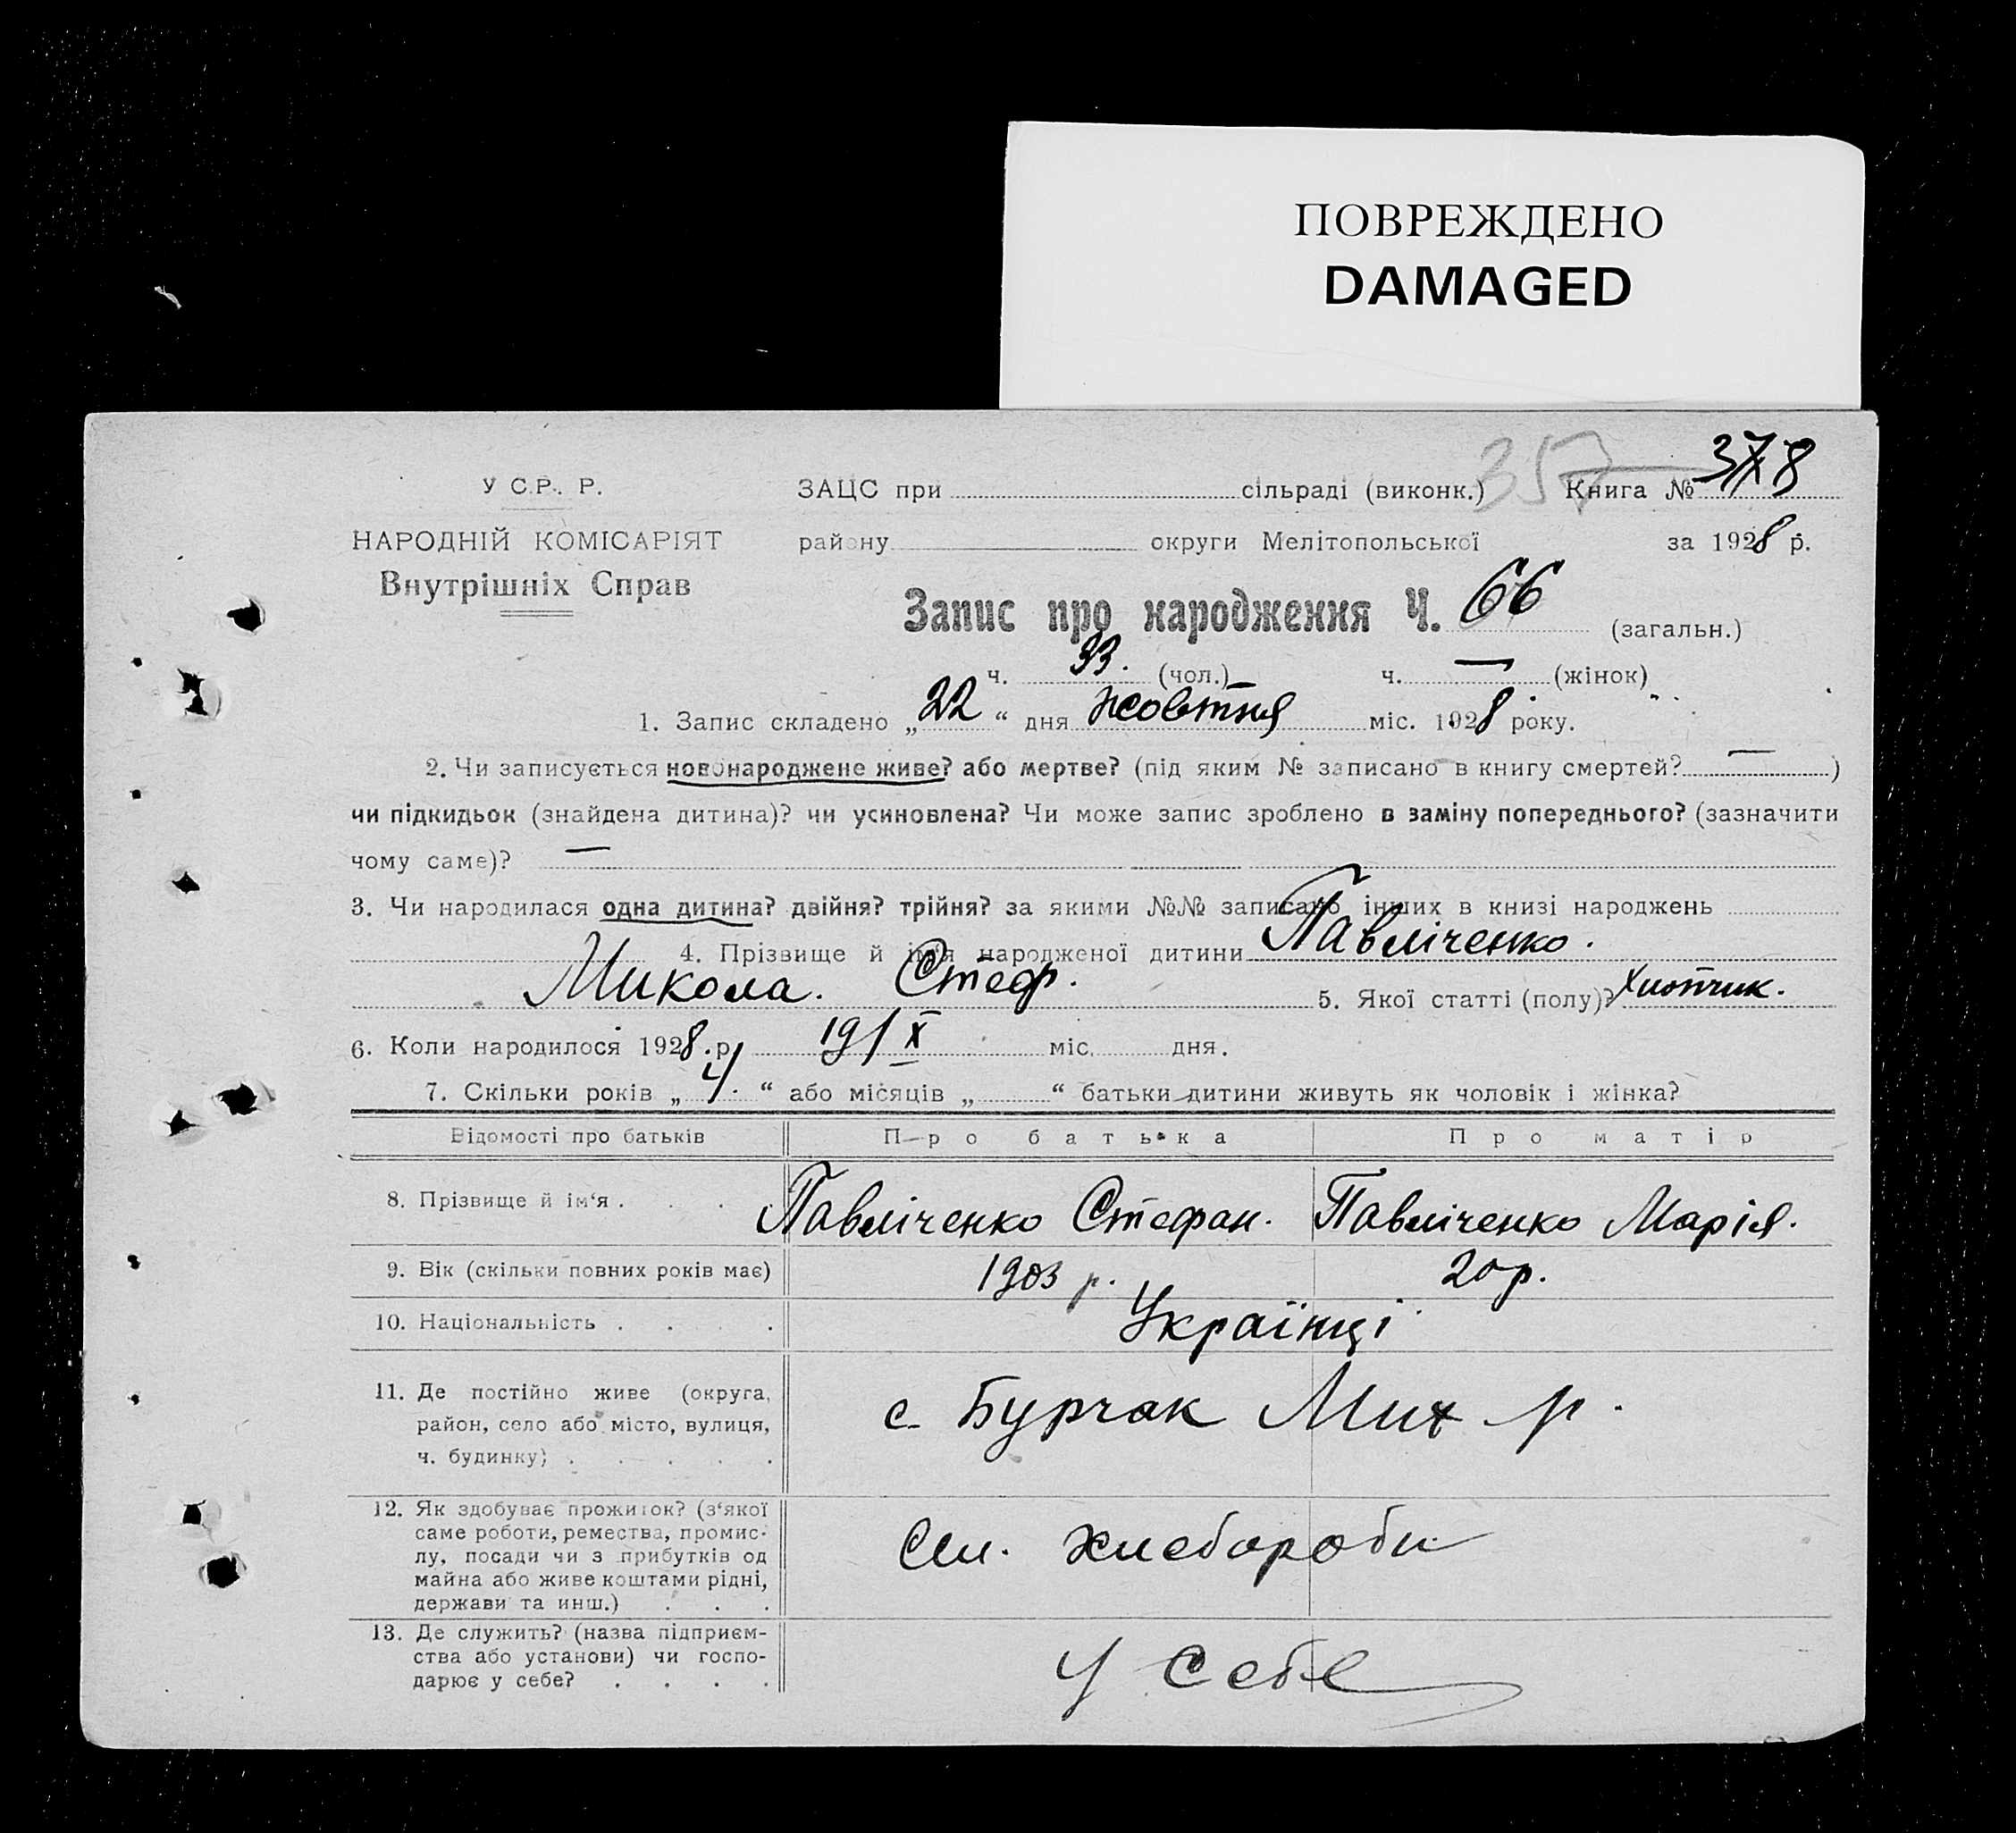 ПОВРЕЖДЕНО
DAMAGED
357
У С.Р. Р.
ЗАЦС при сільраді (виконк.) Книга № 378
НАРОДНІЙ КОМІСАРІЯТ
району округи Мелітопольської за 1928 р.
Внутрішніх Справ
Запис про народження Ч. 66 (загальн.)
ч. 33. (чол.) ч. — (жінок)
1. Запис складено „22“ дня жовтня міс. 1928 року.
2. Чи записується новонароджене живе? або мертве? (під яким № записано в книгу смертей? —)
чи підкидьок (знайдена дитина)? чи усиновлена? Чи може запис зроблено в заміну попереднього? (зазначити
чому саме)? —
3. Чи народилася одна дитина? двійня? трійня? за якими №№ записано інших в книзі народжень
4. Прізвище й ім'я народженої дитини Павліченко.
Микола. Стеф. 5. Якої статті (полу)? Хлопчик.
6. Коли народилося 1928 р. 19/X міс. дня.
7. Скільки років „4.“ або місяців „ “ батьки дитини живуть як чоловік і жінка?
Відомості про батьків Про батька Про матір
8. Прізвище й ім'я . Павліченко Стефан. Павліченко Марія.
9. Вік (скільки повних років має) 1903 р. 20 р.
10. Національність . . . . Українці
11. Де постійно живе (округа,
район, село або місто, вулиця,
ч. будинку) . . . . .
с. Бурчак Мих р.
12. Як здобуває прожиток? (з'якої
саме роботи, ремества, промис-
лу, посади чи з прибутків од
майна або живе коштами рідні,
держави та инш.) . . .
хлебороби
13. Де служить? (назва підприєм-
ства або установи) чи госпо-
дарює у себе? . . . .
У себе